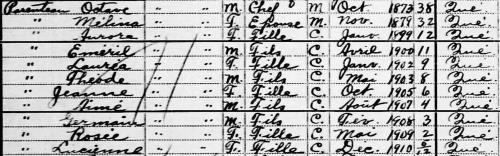 Parenteau Octave " " M. Chef M Oct. 1873 38 Qué
" Mélina " " F. Epouse M. Nov. 1879 32 Qué
" Aurora " " F. Fille C. Janv. 1899 12 Qué
" Eméril " " M. Fils C. Avril 1900 11 Qué
" Lauréa " " F. Fille C. Janv. 1902 9 Qué
" " " M. Fils C. Mai 1903 8 Qué
" Jeanne " " F. Fille C. Oct. 1905 6 Qué
" Aimé " " M. Fils C. Août 1907 4 Qué
" Germain " " M. Fils C. Fév. 1908 3 Qué
" Rosée " " F. Fille C. Mai 1909 2 Qué
" Lucienne " " F. Fille C. Dec. 1910 Qué